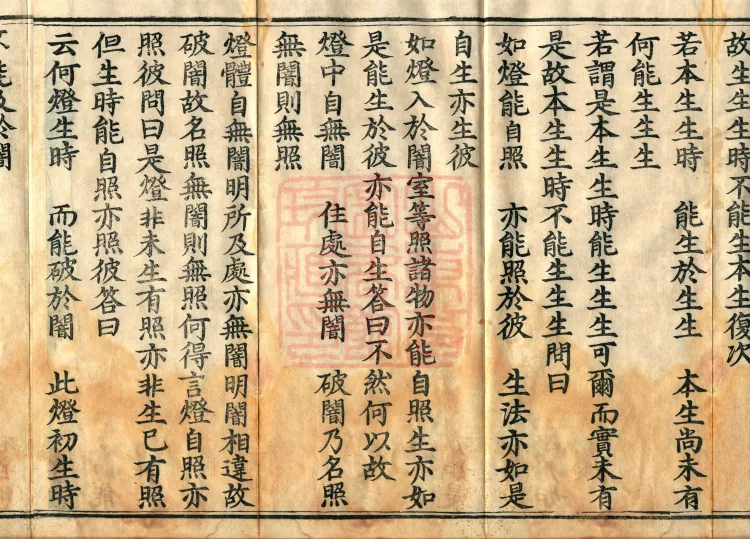 故生生生時不能生本生復次
若本生生時　能生於生生　本生尚未有
何能生生生
若謂是本生生時能生生生可爾而實未有
是故本生生時不能生生生問曰
如燈能自照　亦能照於彼　生法亦如是
自生亦生彼
如燈入於闇室等照諸物亦能自照生亦如
是能生於彼亦能自生答曰不然何以故
燈中自無闇　住處亦無闇　破闇乃名照
無闇則無照
燈體自無闇明所及處亦無闇明闇相違故
破闇故名照無闇則無照何得言燈自照亦
照彼問曰是燈非未生有照亦非生已有照
但生時能自照亦照彼答曰
云何燈生時　而能破於闇　此燈初生時
不能及於闇